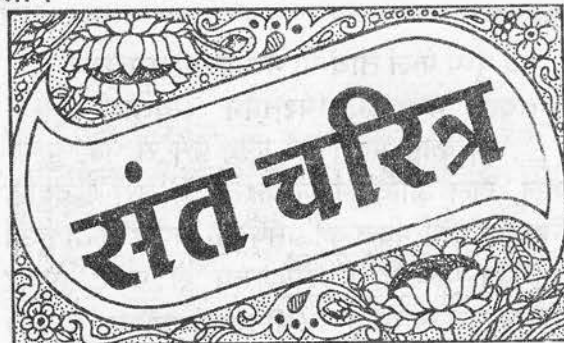 संत चरित्र